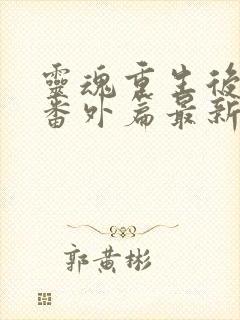 靈魂重生後
番外篇最新
郭黃彬